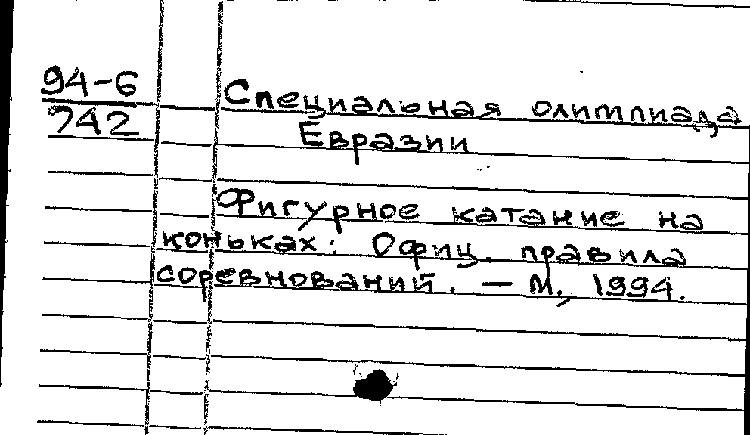 94-6
742
Специальная олимпиада
Евразии
Фигурное катание на
коньках: Офиц. правила
соревнований. — М., 1994.